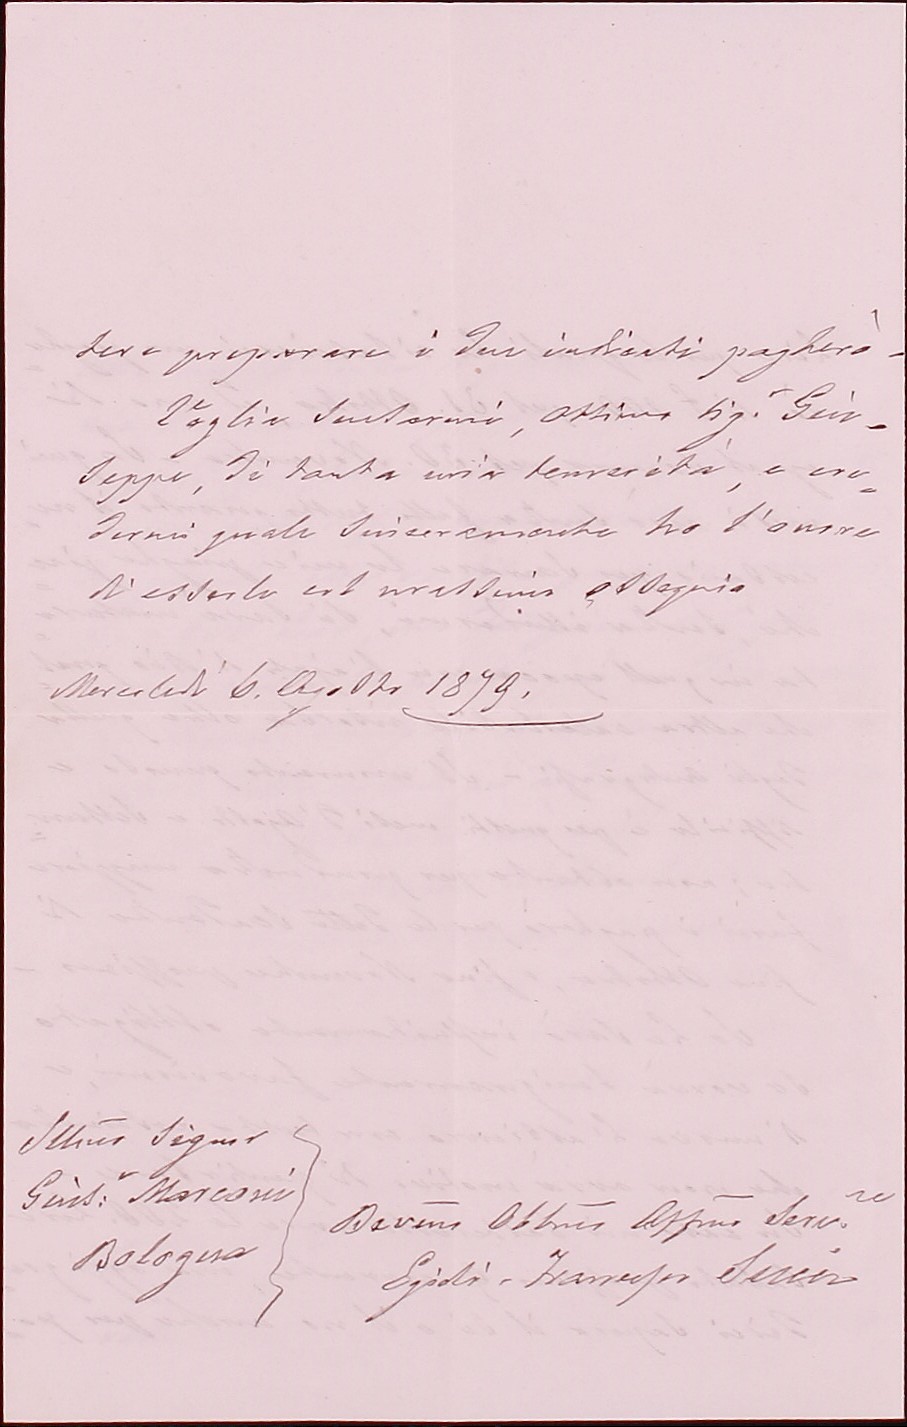 dere preparare i due indicati pagherò -
Voglia scusarmi, ottimo Sig.r Giu-
seppe, di tanta mia temerità, e cre-
dermi quale sinceramente ho l'onore
di esserlo col massimo ossequio
Mercoledì 6. Agosto 1879.
Illmo Signor
Gius.e Marconi
Bologna
Devmo Obbmo Affmo Serv.re
Egidi - Francesco